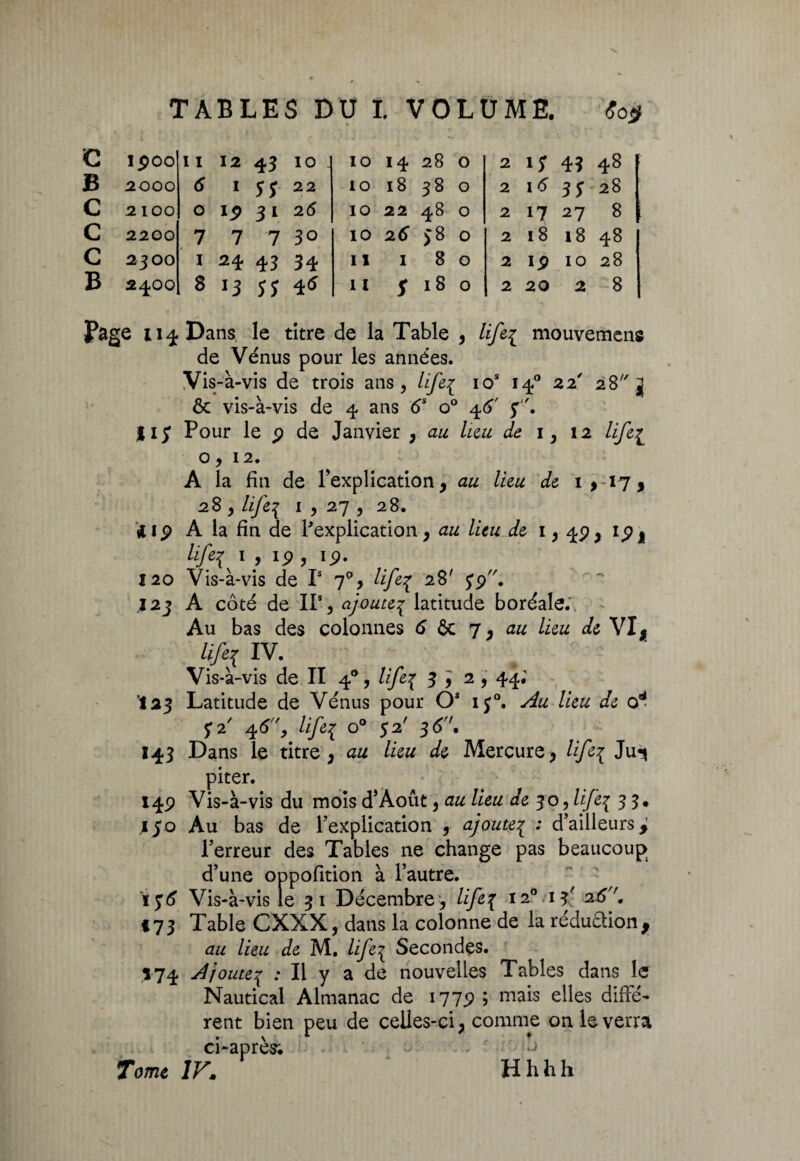 TABLES DU I. VOLUME. 609
C 1900 11 12 43 10 10 14 28 0 2 15 43 48
B 2000 6 1 55 22 10 18 38 0 2 16 35 28
C 2100 0 19 31 26 10 22 48 0 2 17 27 8
C 2200 7 7 7 30 10 26 58 0 2 18 18 48
C 2300 1 24 43 34 11 1 8 0 2 19 10 28
B 2400 8 13 55 46 11 5 18 0 2 20 2 8
Page 114 Dans le titre de la Table, lisez mouvemens
de Vénus pour les années.
Vis-à-vis de trois ans, lisez 10ˢ 14° 22′ 28″;
& vis-à-vis de 4 ans 6ˢ 0° 46′ 5″.
115 Pour le 9 de Janvier, au lieu de 1, 12 lisez
0, 12.
A la fin de l'explication, au lieu de 1, 17,
28, lisez 1, 27, 28.
119 A la fin de l'explication, au lieu de 1, 49, 19,
lisez 1, 19, 19.
120 Vis-à-vis de Iˢ 7°, lisez 28′ 59″.
123 A côté de IIˢ, ajoutez latitude boréale.
Au bas des colonnes 6 & 7, au lieu de VI,
lisez IV.
Vis-à-vis de II 4°, lisez 3, 2, 44.
123 Latitude de Vénus pour Oˢ 15°. Au lieu de 0ᵈ
52′ 46″, lisez 0° 52′ 36″.
143 Dans le titre, au lieu de Mercure, lisez Ju-
piter.
149 Vis-à-vis du mois d'Août, au lieu de 30, lisez 33.
150 Au bas de l'explication, ajoutez : d'ailleurs,
l'erreur des Tables ne change pas beaucoup
d'une opposition à l'autre.
156 Vis-à-vis le 31 Décembre, lisez 12° 13′ 26″.
173 Table CXXX, dans la colonne de la réduction,
au lieu de M. lisez Secondes.
174 Ajoutez : Il y a de nouvelles Tables dans le
Nautical Almanac de 1779 ; mais elles diffé-
rent bien peu de celles-ci, comme on le verra
ci-après.
Tome IV. Hhhh